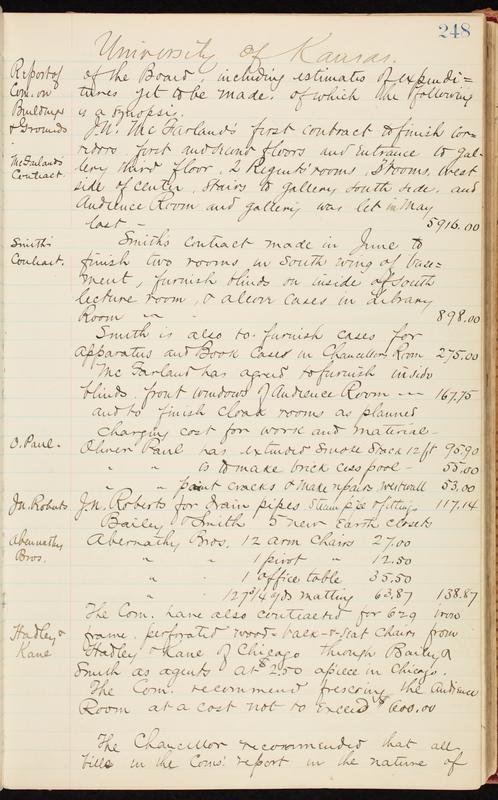 248
University of Kansas.
Report of Com. on Buildings & Grounds
of the Board, including estimates of expendi=
tures yet to be made. of which the following
is a synopsis.
Jn. McFarland's first contract to finish cor-
McFarland's Contract.
ridors, first and second floors and entrance to gal-
lery third floor, 2 Regents' rooms, 3 rooms, west
side of center, stairs to gallery south side, and
Audience Room and gallery was let in May
last — 5916.00
Smith's Contract.
Smith's contract made in June to
finish two rooms in south wing of base-
ment, furnish blinds on inside of south
lecture room, & alcove cases in Library
Room 898.00
Smith is also to furnish cases for
apparatus and Book Cases in Chancellors Room 275.00
McFarland has agreed to furnish inside
blinds, front windows of Audience Room 167.75
and to finish cloak rooms as planned
charging cost for work and material—
O. Paul.
Oliver Paul has extended Smoke Stack 12 ft 95.90
" " is to make brick cess pool — 55.00
" " paint cracks & make repairs west wall 53.00
Jn. Roberts
Jn. Roberts for drain pipes, steam pipe & fittings 117.14
Bailey & Smith 5 new Earth closets
Abernathy Bros.
Abernathy Bros. 12 arm chairs 27.00
" " 1 pivot " 12.50
" " 1 office table 35.50
" 127 3/4 yds matting 63.87 138.87
The Com. have also contracted for 629 iron
Hadley & Kane
frame, perforated wood-back-&-seat Chairs from
Hadley & Kane of Chicago through Bailey &
Smith as agents at $2.50 apiece in Chicago.
The Com. recommend frescoing the Audience
Room at a cost not to exceed $600.00
The Chancellor recommended that all
bills in the Coms' report in the nature of